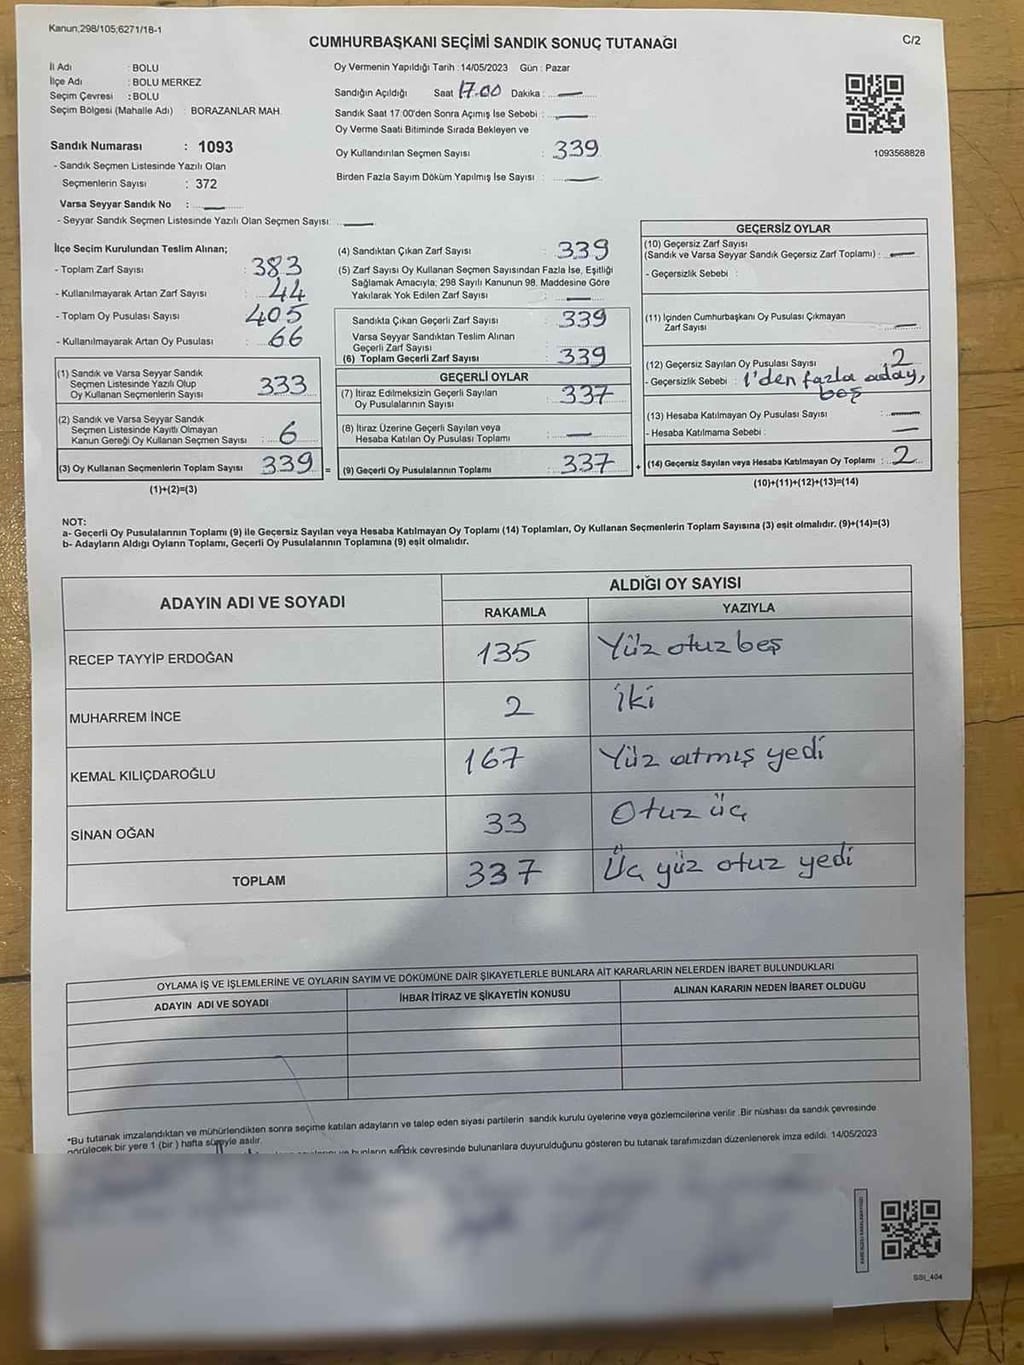 Kanun,298/105;6271/18-1
CUMHURBAŞKANI SEÇİMİ SANDIK SONUÇ TUTANAĞI
C/2
İl Adı : BOLU
İlçe Adı : BOLU MERKEZ
Seçim Çevresi : BOLU
Seçim Bölgesi (Mahalle Adı) : BORAZANLAR MAH.
Sandık Numarası : 1093
- Sandık Seçmen Listesinde Yazılı Olan
Seçmenlerin Sayısı : 372
Varsa Seyyar Sandık No : —
- Seyyar Sandık Seçmen Listesinde Yazılı Olan Seçmen Sayısı: —
Oy Vermenin Yapıldığı Tarih : 14/05/2023 Gün : Pazar
Sandığın Açıldığı Saat 17.00 Dakika : —
Sandık Saat 17:00'den Sonra Açımış İse Sebebi : —
Oy Verme Saati Bitiminde Sırada Bekleyen ve
Oy Kullandırılan Seçmen Sayısı : 339
Birden Fazla Sayım Döküm Yapılmış İse Sayısı : —
1093568828
İlçe Seçim Kurulundan Teslim Alınan;
- Toplam Zarf Sayısı : 383
- Kullanılmayarak Artan Zarf Sayısı : 44
- Toplam Oy Pusulası Sayısı : 405
- Kullanılmayarak Artan Oy Pusulası : 66
(1) Sandık ve Varsa Seyyar Sandık
Seçmen Listesinde Yazılı Olup
Oy Kullanan Seçmenlerin Sayısı : 333
(2) Sandık ve Varsa Seyyar Sandık
Seçmen Listesinde Kayıtlı Olmayan
Kanun Gereği Oy Kullanan Seçmen Sayısı : 6
(3) Oy Kullanan Seçmenlerin Toplam Sayısı : 339 =
(1)+(2)=(3)
(4) Sandıktan Çıkan Zarf Sayısı : 339
(5) Zarf Sayısı Oy Kullanan Seçmen Sayısından Fazla İse, Eşitliği
Sağlamak Amacıyla; 298 Sayılı Kanunun 98. Maddesine Göre
Yakılarak Yok Edilen Zarf Sayısı : —
Sandıkta Çıkan Geçerli Zarf Sayısı : 339
Varsa Seyyar Sandıktan Teslim Alınan
Geçerli Zarf Sayısı :
(6) Toplam Geçerli Zarf Sayısı : 339
GEÇERLİ OYLAR
(7) İtiraz Edilmeksizin Geçerli Sayılan
Oy Pusulalarının Sayısı : 337
(8) İtiraz Üzerine Geçerli Sayılan veya
Hesaba Katılan Oy Pusulası Toplamı : —
(9) Geçerli Oy Pusulalarının Toplamı : 337 +
GEÇERSİZ OYLAR
(10) Geçersiz Zarf Sayısı
(Sandık ve Varsa Seyyar Sandık Geçersiz Zarf Toplamı) : —
- Geçersizlik Sebebi :
(11) İçinden Cumhurbaşkanı Oy Pusulası Çıkmayan
Zarf Sayısı —
(12) Geçersiz Sayılan Oy Pusulası Sayısı : 2
- Geçersizlik Sebebi : 1'den fazla aday,
boş
(13) Hesaba Katılmayan Oy Pusulası Sayısı : —
- Hesaba Katılmama Sebebi : —
(14) Geçersiz Sayılan veya Hesaba Katılmayan Oy Toplamı : 2
(10)+(11)+(12)+(13)=(14)
NOT:
a- Geçerli Oy Pusulalarının Toplamı (9) ile Geçersiz Sayılan veya Hesaba Katılmayan Oy Toplamı (14) Toplamları, Oy Kullanan Seçmenlerin Toplam Sayısına (3) eşit olmalıdır. (9)+(14)=(3)
b- Adayların Aldığı Oyların Toplamı, Geçerli Oy Pusulalarının Toplamına (9) eşit olmalıdır.
ADAYIN ADI VE SOYADI
ALDIĞI OY SAYISI
RAKAMLA YAZIYLA
RECEP TAYYİP ERDOĞAN 135 Yüz otuz beş
MUHARREM İNCE 2 İki
KEMAL KILIÇDAROĞLU 167 Yüz atmış yedi
SİNAN OĞAN 33 Otuz üç
TOPLAM 337 Üç yüz otuz yedi
OYLAMA İŞ VE İŞLEMLERİNE VE OYLARIN SAYIM VE DÖKÜMÜNE DAİR ŞİKAYETLERLE BUNLARA AİT KARARLARIN NELERDEN İBARET BULUNDUKLARI
ADAYIN ADI VE SOYADI İHBAR İTİRAZ VE ŞİKAYETİN KONUSU ALINAN KARARIN NEDEN İBARET OLDUĞU
*Bu tutanak imzalandıktan ve mühürlendikten sonra seçime katılan adayların ve talep eden siyasi partilerin sandık kurulu üyelerine veya gözlemcilerine verilir .Bir nüshası da sandık çevresinde
görülecek bir yere 1 (bir ) hafta süreyle asılır.
bunların sandık çevresinde bulunanlara duyurulduğunu gösteren bu tutanak tarafımızdan düzenlenerek imza edildi. 14/05/2023
SSI_404